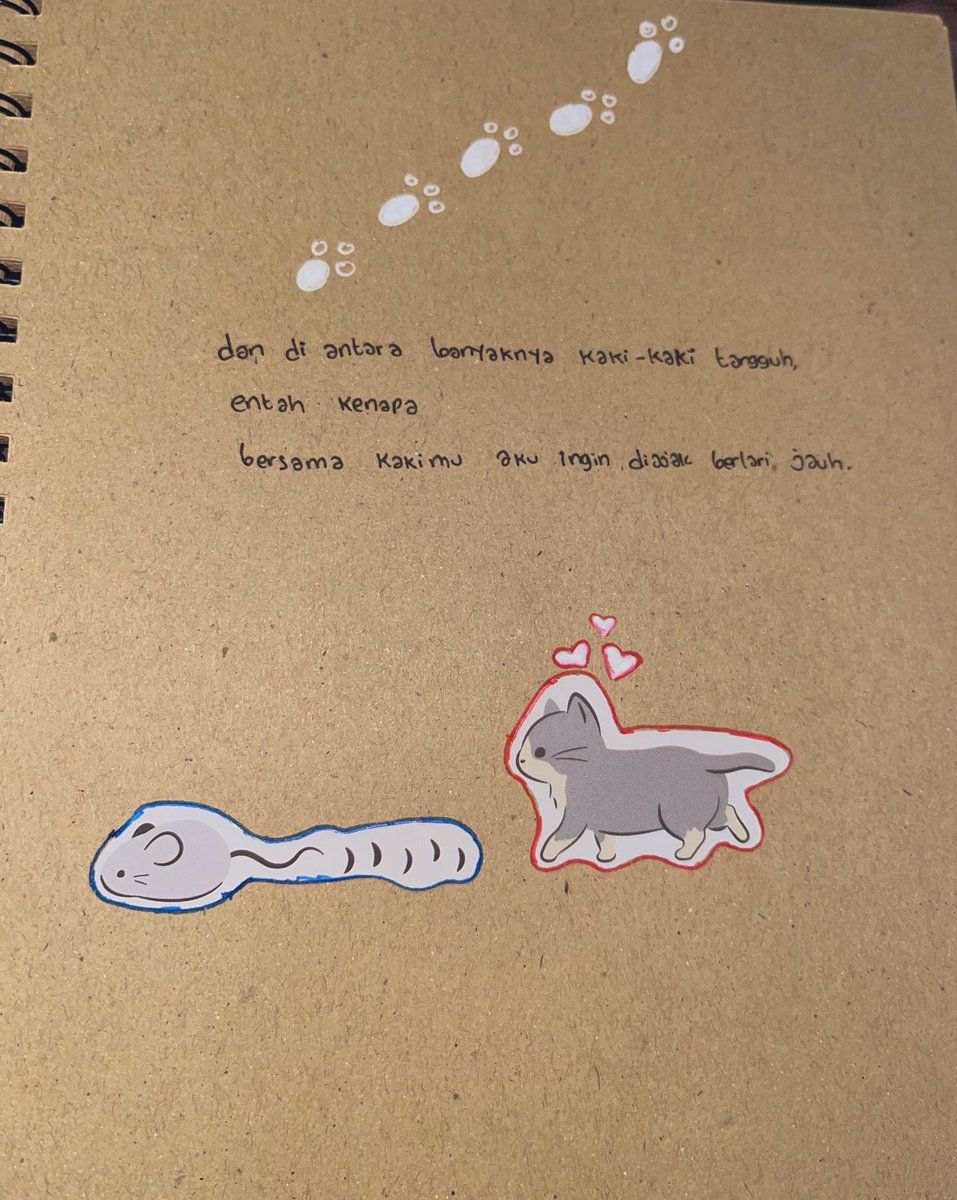 dan di antara banyaknya kaki-kaki tangguh,
entah kenapa
bersama kakimu aku ingin diajak berlari jauh.